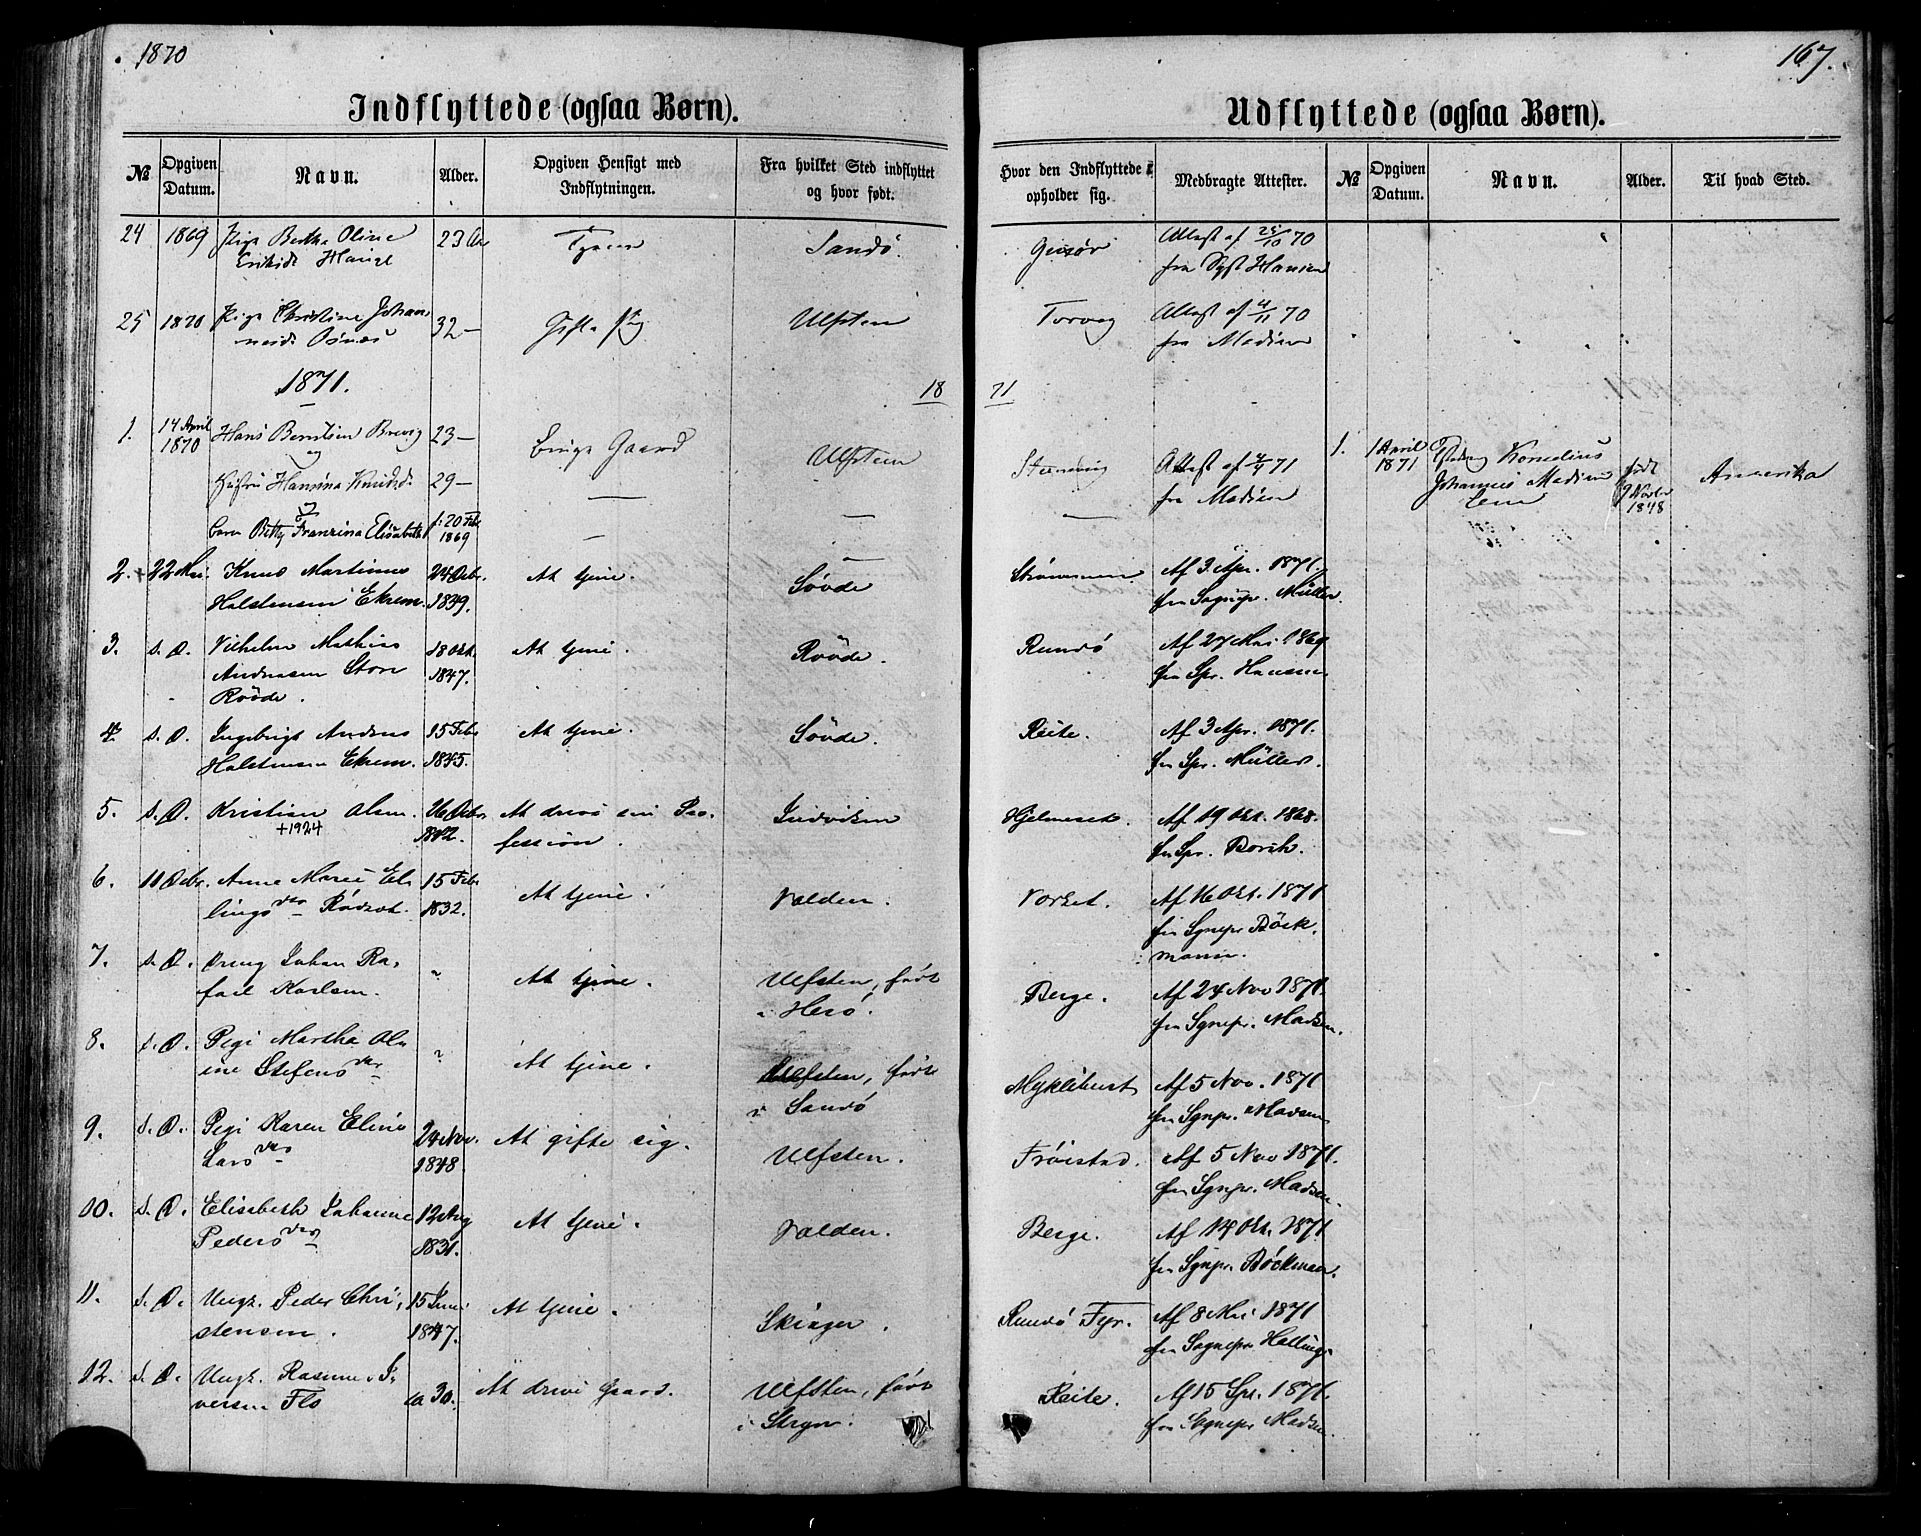 1870
Indflyttede (ogsaa Børn).
№ Opgiven Datum. Navn. Alder. Opgiven Hensigt med Indflytningen. Fra hvilket Sted indflyttet og hvor født.
24 1869 Pige Bertha Oline 23 Sandø.
25 1870 Pige Christine Johan- 32 — Gifte sig Ulfsten
1871.
18
1. 14 April 1870 Hans Berntsen Brevig 23 — Bruge Gaard Ulfsten
og
Hustru Hansina Knudsd. 29 — —
og
Barn Betty Franzina Elisabeth f: 20 Feb 1869 — —
2. + 22 Mai. Knud Martinus 24 Debr. At tjene. Søvde
Halstensen Ekrem. 1839.
3. s. D. Vilhelm Mathias 18 Okt. At tjene. Røvde.
Andreasen Store 1847.
Røvde.
4. s. D. Ingebrigt Anders 15 Feb At tjene. Søvde.
Halstensen Ekrem. 1845.
5. s. D. Kristian Olsen. 26 Debr. At drive sin Pro- Indviken
+1924 1842. fession.
6. 11 Debr. Anne Marie El- 15 Feb At tjene. Volden.
lingsdtr 1832.
7. s. D. Dreng Johan Ra- ? At tjene. Ulfsten, født
fael Karlsen. i Herø.
8. s. D. Pige Martha Ol- ? At tjene. Ulfsten, født
ine Stefensdtr i Sandø
9. s. D. Pige Karen Eline 24 Nov. At gifte sig. Ulfsten.
Larsdtr 1848.
10. s. D. Elisabeth Johanne 12 Aug At tjene. Volden.
Pedersdtr 1831.
11. s. D. Ungk. Peder Chri- 15 Juni At tjene. Skiager.
stensen. 1847.
12. s. D. Ungk. Rasmus I- ca 30. At drive Gaard. Ulfsten, født
versen Flo i Stryn.
167.
Udflyttede (ogsaa Børn).
Hvor den Indflyttede opholder sig. Medbragte Attester. № Opgiven Datum. Navn. Alder. Til hvad Sted.
Attest af 25/10 70
fra Hansen
Torvig Attest af 4/11 70
fra Madsen
71
Attest af 71
fra Madsen
—
1. 1 April 1871 Kornelius
Johannes Madsen
født 9 Novbr 1848 Amerika
Strømmen Af 3. Apr. 1871.
fra Sognepr. Müller.
Rundø Af 27 Mai 1869
fra Spr. Hansen.
Reite. Af 3 Apr. 1871.
fra Spr. Müller.
Hjelmeset. Af 19 Okt. 1868.
fra Spr. Borch.
Vorset. Af 16 Okt. 1871
fra Sgnepr Böck-
mann.
Berge. Af 24 Nov 1871.
fra Sgnepr. Madsen.
Myklebust Af 5 Nov. 1871
fra Sgnpr. Madsen
Frøistad. Af 5 Nov 1871.
fra Sgnpr. Madsen
Berge. Af 14 Okt. 1871
fra Sgnpr. Böckman.
Rundø Fyr. Af 8 Mai 1871
fra Sognepr Helling-
Reite. Af 15 1871.
fra Sognepr Madsen